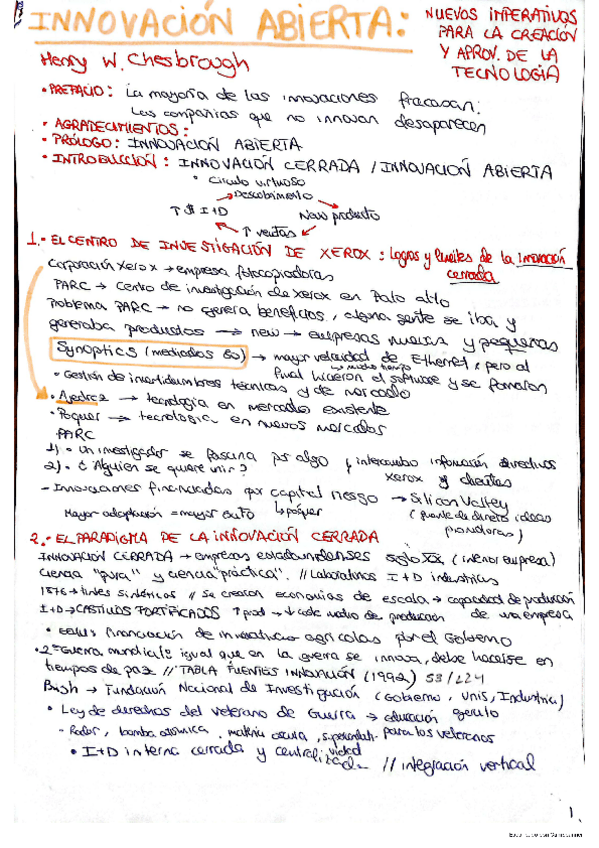 INNOVACIÓN ABIERTA:
NUEVOS IMPERATIVOS
PARA LA CREACIÓN
Y APROV. DE LA
TECNOLOGÍA
Henry W. Chesbrough
• PREFACIO: La mayoría de las innovaciones fracasan:
Las compañías que no innovan desaparecen
• AGRADECIMIENTOS:
• PRÓLOGO: INNOVACIÓN ABIERTA
• INTRODUCCIÓN: INNOVACIÓN CERRADA / INNOVACIÓN ABIERTA
• Círculo virtuoso
Descubrimiento
↑ $ I+D
New producto
↑ ventas
1.- EL CENTRO DE INVESTIGACIÓN DE XEROX: Logros y límites de la innovación
cerrada
Corporación Xerox → empresa fotocopiadoras
PARC → Centro de investigación de xerox en Palo Alto
Problema PARC → no genera beneficios, alguna gente se iba y
generaba productos → new → empresas nuevas y pequeñas
Synoptics (mediados 80) → mayor velocidad de Ethernet, pero al
→ mucho tiempo
final hicieron el software y se forraron
• Gestión de incertidumbres técnicas y de mercado
• Ajedrez → tecnología en mercados existente
• Poquer → tecnología en nuevos mercados
PARC
1) • Un investigador se fascina por algo y intercambio información directivos
2) • ¿Alguien se quiere unir?
xerox y clientes
- Innovaciones financiadas por capital riesgo → Silicon Valley
Mayor adaptación = mayor éxito
↳ póquer
(fuente de dinero ideas
2.- EL PARADIGMA DE LA INNOVACIÓN CERRADA
INNOVACIÓN CERRADA → empresas estadounidenses siglo XX (interior empresa)
Ciencia "pura" y ciencia "práctica". // Laboratorios I+D industrias
1876 → tintes sintéticos // se crearon economías de escala → capacidad de producción
I+D → CASTILLOS FORTIFICADOS ↑ prod → ↓ coste medio de producción
de una empresa
• EEUU: financiación de iniciativas agrícolas por el Gobierno
• 2ª Guerra mundial: igual que en la guerra se innova, debe hacerse en
tiempos de paz // TABLA FUENTES INNOVACIÓN (1992) 53/224
Bush → Fundación Nacional de Investigación (Gobierno, Unis, Industria)
• Ley de derechos del veterano de Guerra → educación
para los veteranos
- Radar, bomba atómica, materia oscura,
• I+D interna cerrada y centralizada // integración vertical
1